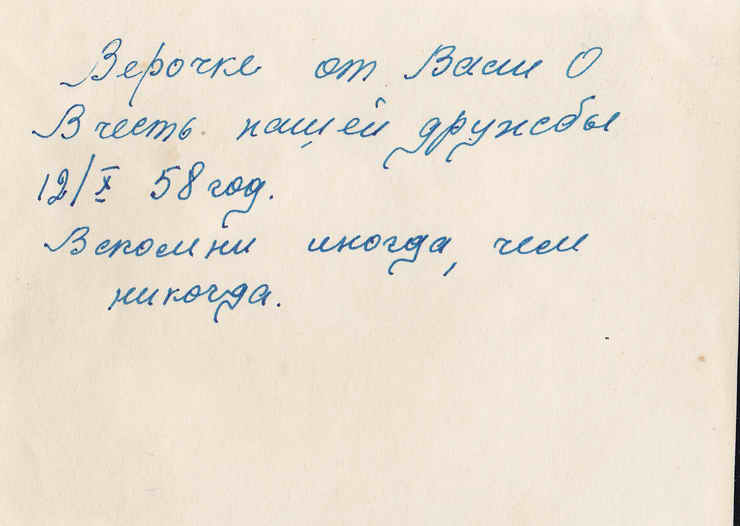 Верочке от Васи О
В честь нашей дружбы
12/X 58 год.
Вспомни иногда, чем
никогда.